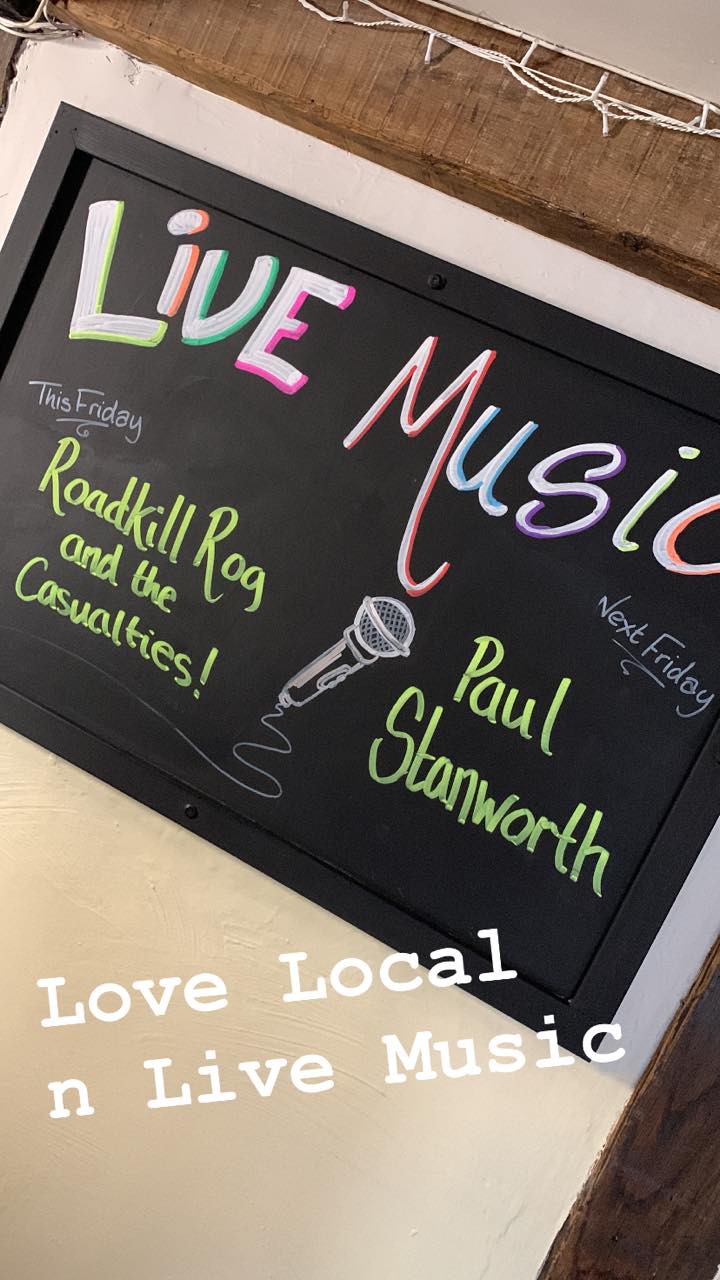 LIVE MUSIC
This Friday
Roadkill Rog
and the
Casualties!
Next Friday
Paul
Stanworth
Love Local
n Live Music